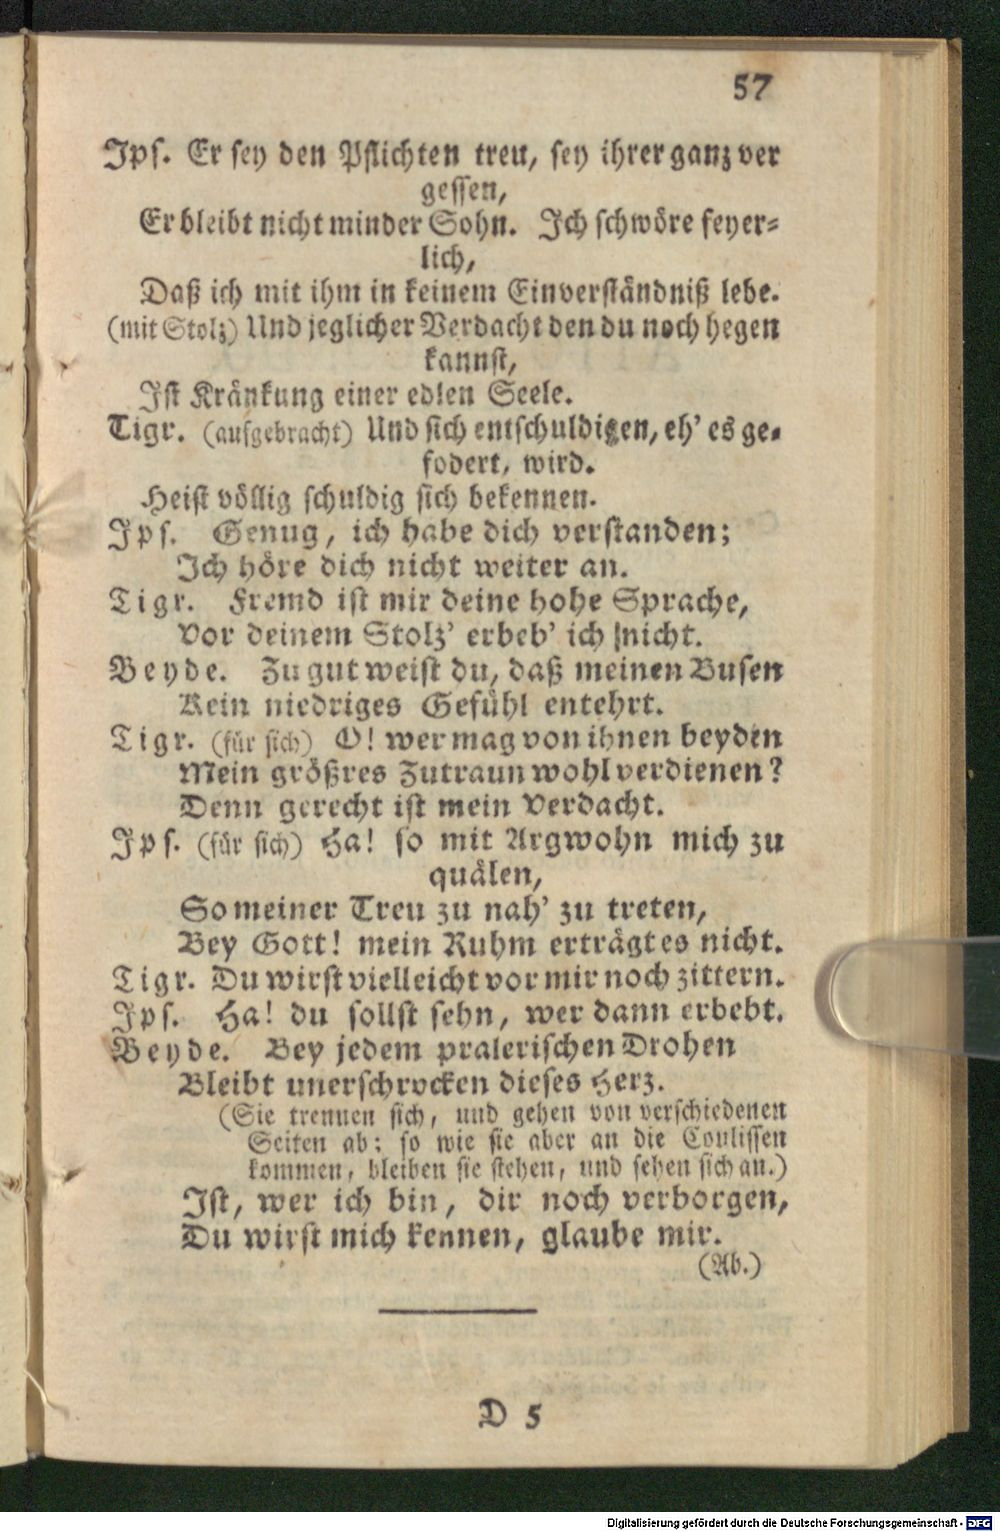 57
Ips. Er sey den Pflichten treu, sey ihrer ganz ver
gessen,
Er bleibt nicht minder Sohn. Ich schwöre feyer-
lich,
Daß ich mit ihm in keinem Einverständniß lebe.
(mit Stolz) Und jeglicher Verdacht den du noch hegen
kannst,
Ist Kränkung einer edlen Seele.
Tigr. (aufgebracht) Und sich entschuldigen, eh' es ge-
fodert, wird.
Heist völlig schuldig sich bekennen.
Ips. Genug, ich habe dich verstanden;
Ich höre dich nicht weiter an.
Tigr. Fremd ist mir deine hohe Sprache,
Vor deinem Stolz' erbeb' ich nicht.
Beyde. Zu gut weist du, daß meinen Busen
Kein niedriges Gefühl entehrt.
Tigr. (für sich) O! wer mag von ihnen beyden
Mein größres Zutraun wohl verdienen?
Denn gerecht ist mein Verdacht.
Ips. (für sich) Ha! so mit Argwohn mich zu
quälen,
So meiner Treu zu nah' zu treten,
Bey Gott! mein Ruhm erträgt es nicht.
Tigr. Du wirst vielleicht vor mir noch zittern.
Ips. Ha! du sollst sehn, wer dann erbebt.
Beyde. Bey jedem pralerischen Drohen
Bleibt unerschrocken dieses Herz.
(Sie trennen sich, und gehen von verschiedenen
Seiten ab; so wie sie aber an die Coulissen
kommen, bleiben sie stehen, und sehen sich an.)
Ist, wer ich bin, dir noch verborgen,
Du wirst mich kennen, glaube mir.
(Ab.)
D 5
Digitalisierung gefördert durch die Deutsche Forschungsgemeinschaft - DFG